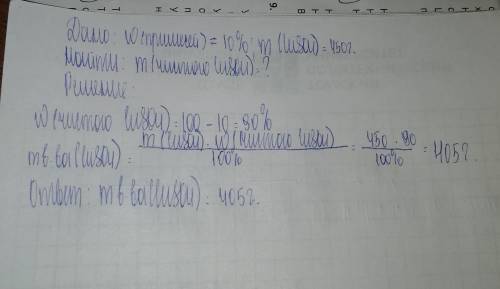 Дано: w(примесей) = 10%; m(CuSO4) = 450г.
Найти: m(чистого CuSO4) = ?
Решение:
w(чистого CuSO4) = 100 - 10 = 90%
m в-ва(CuSO4) = m(CuSO4) · w(чистого CuSO4) / 100% = 450 · 90 / 100% = 405г.
Ответ: m в-ва(CuSO4) = 405г.